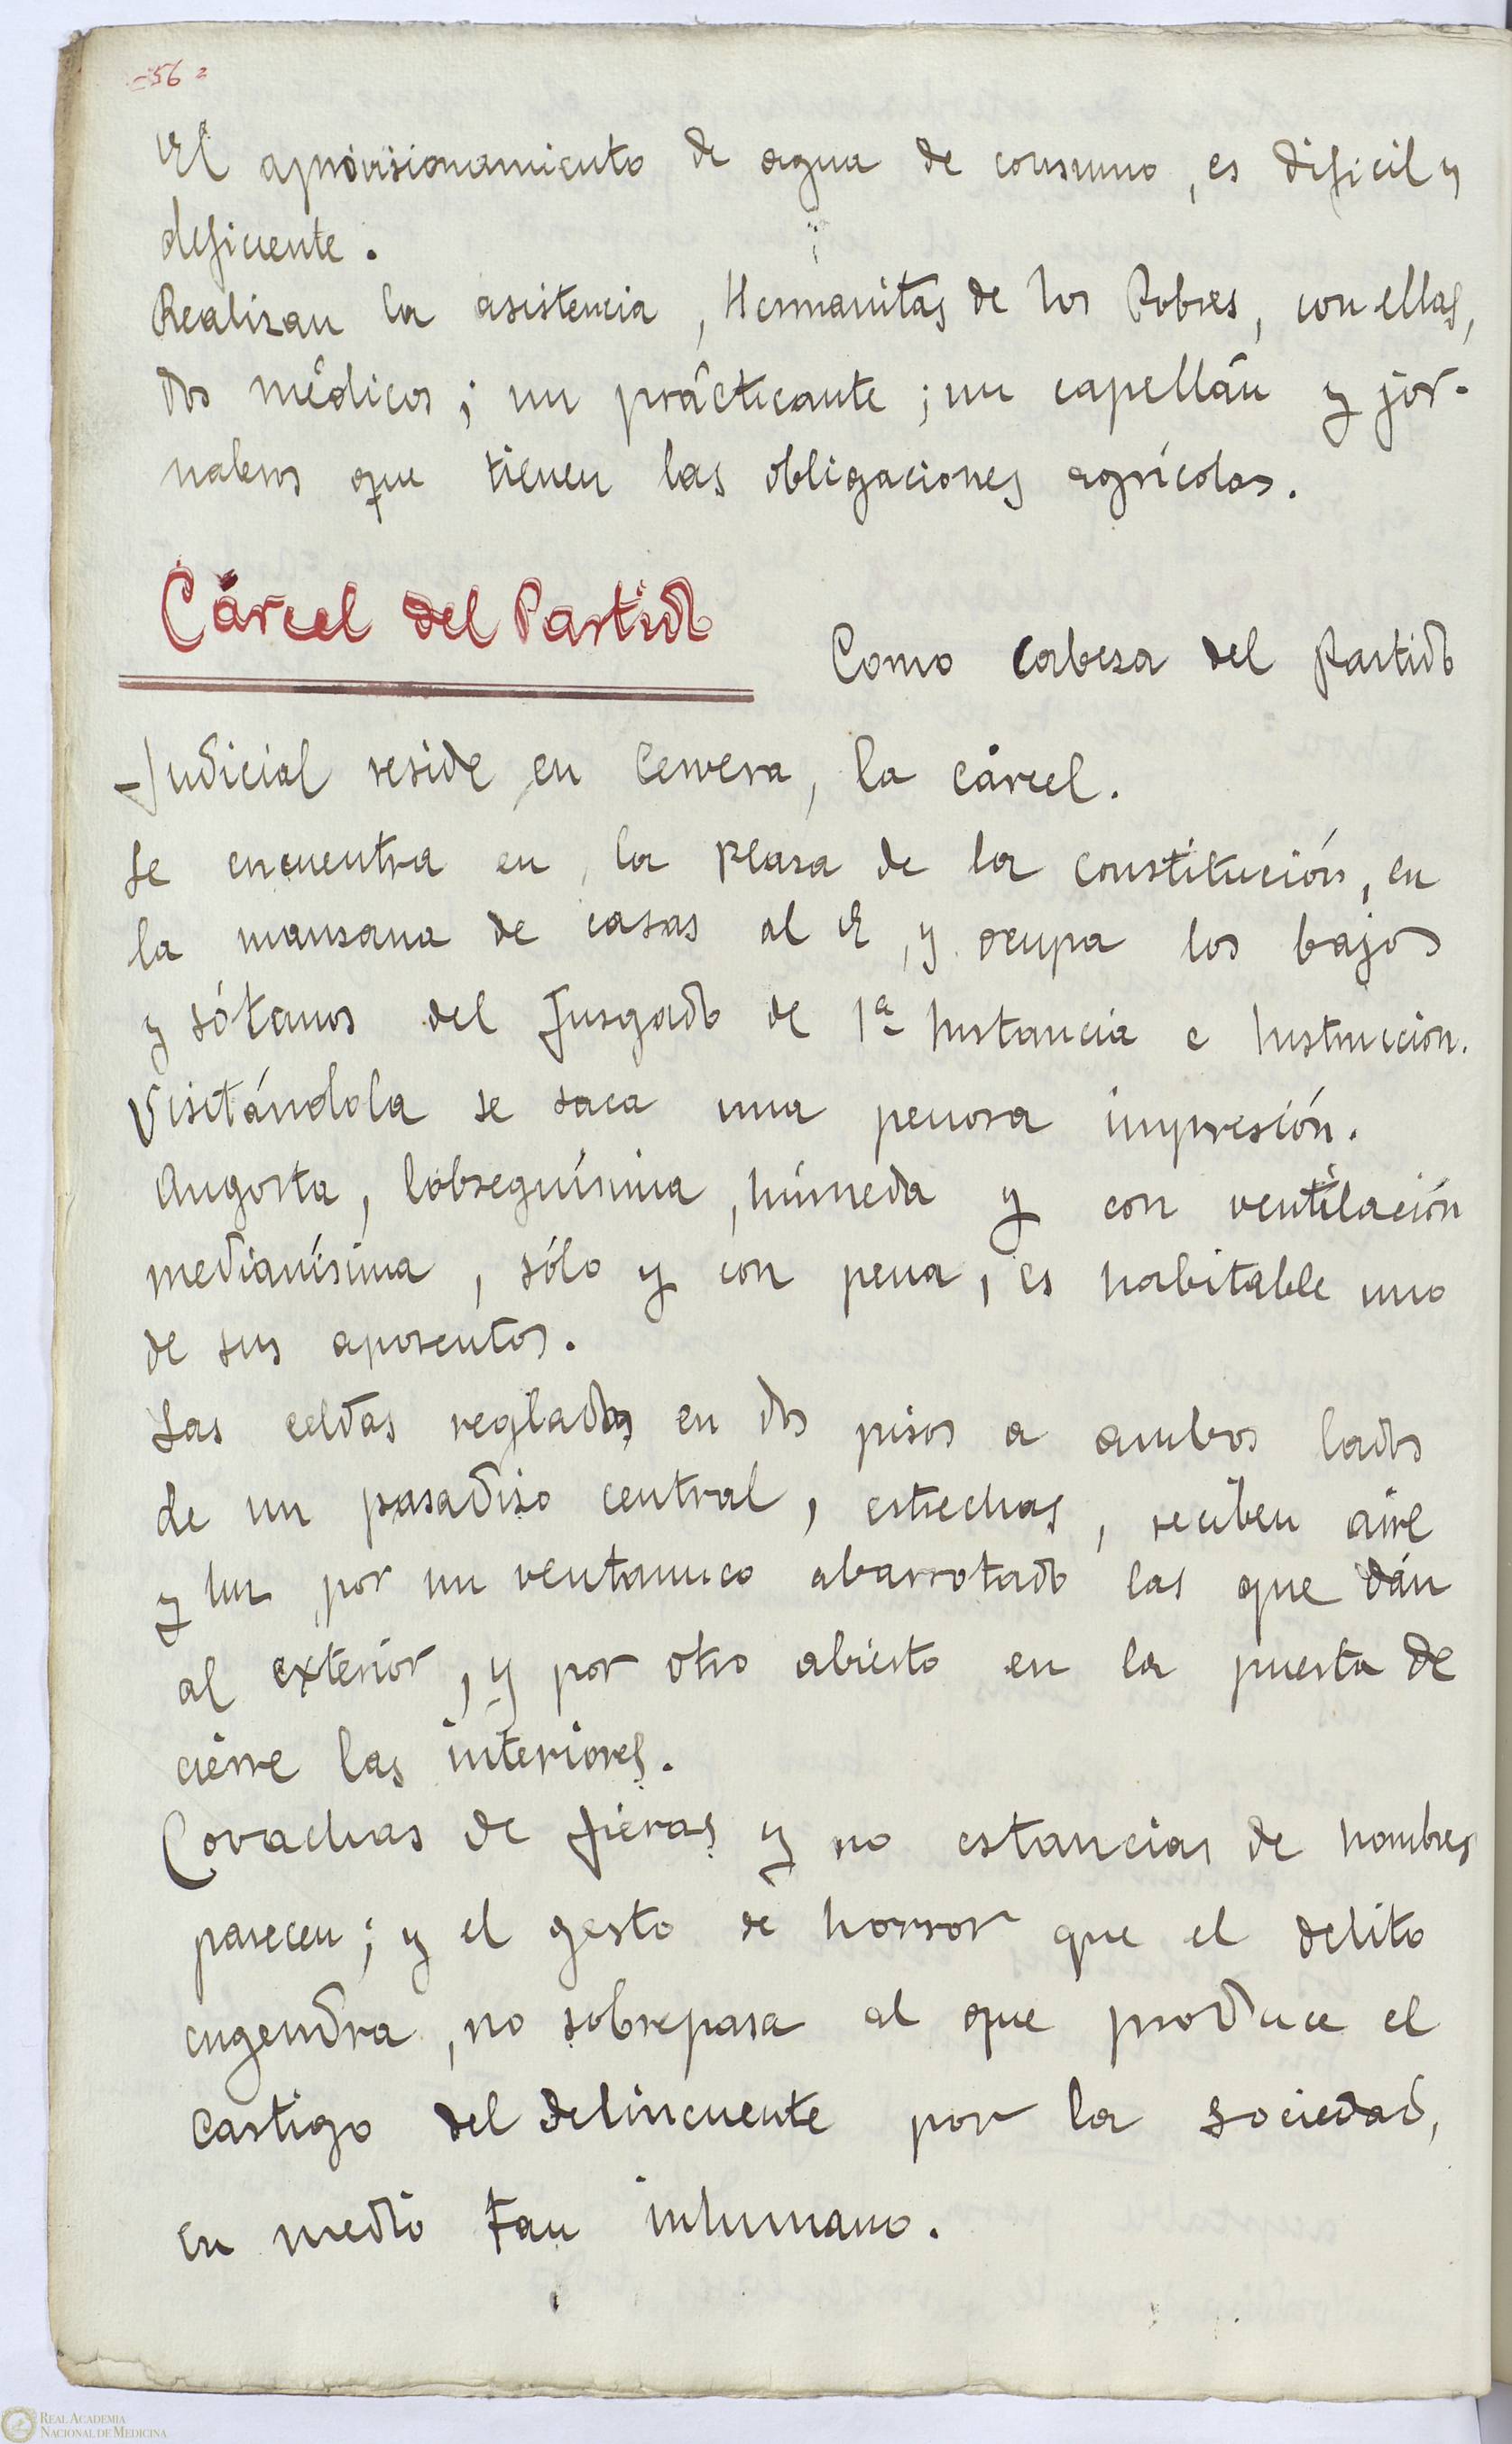 =56=
El aprovisionamiento de agua de consumo, es dificil y
deficiente.
Realizan la asistencia, Hermanitas de los Pobres, con ellas,
dos médicos; un prácticante; un capellán y jor-
naleros que tienen las obligaciones agrícolas.
Cárcel del Partido
Como cabeza del Partido
Judicial reside en Cervera, la cárcel.
Se encuentra en la Plaza de la Constitución, en
la manzana de casas al E, y ocupa los bajos
y sótanos del Juzgado de 1ª Instancia e Instrucción.
Visitándola se saca una penosa impresión.
Angosta, lobreguísima, húmeda y con ventilación
medianísima, sólo y con pena, es habitable uno
de sus aposentos.
Las celdas regladas en dos pisos a ambos lados
de un pasadizo central, estrechas, reciben aire
y luz por un ventanuco abarrotado las que dán
al exterior, y por otro abierto en la puerta de
cierre las interiores.
Covachas de fieras y no estancias de hombres
parecen; y el gesto de horror que el delito
engendra, no sobrepasa al que produce el
castigo del delincuente por la sociedad,
en medio tan inhumano.
REAL ACADEMIA
NACIONAL DE MEDICINA